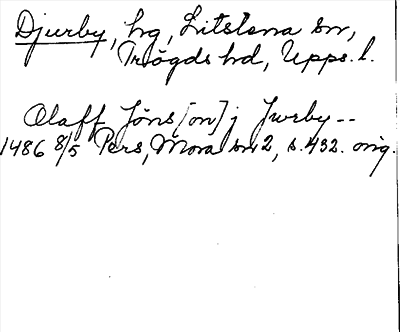 Djurby, hg, Litslena sn,
Trögds hd, Upps. l.
Olaff Jöns[on] j Jwrby--
1486 8/5 Pers, Mora sn 2, s. 432. orig.